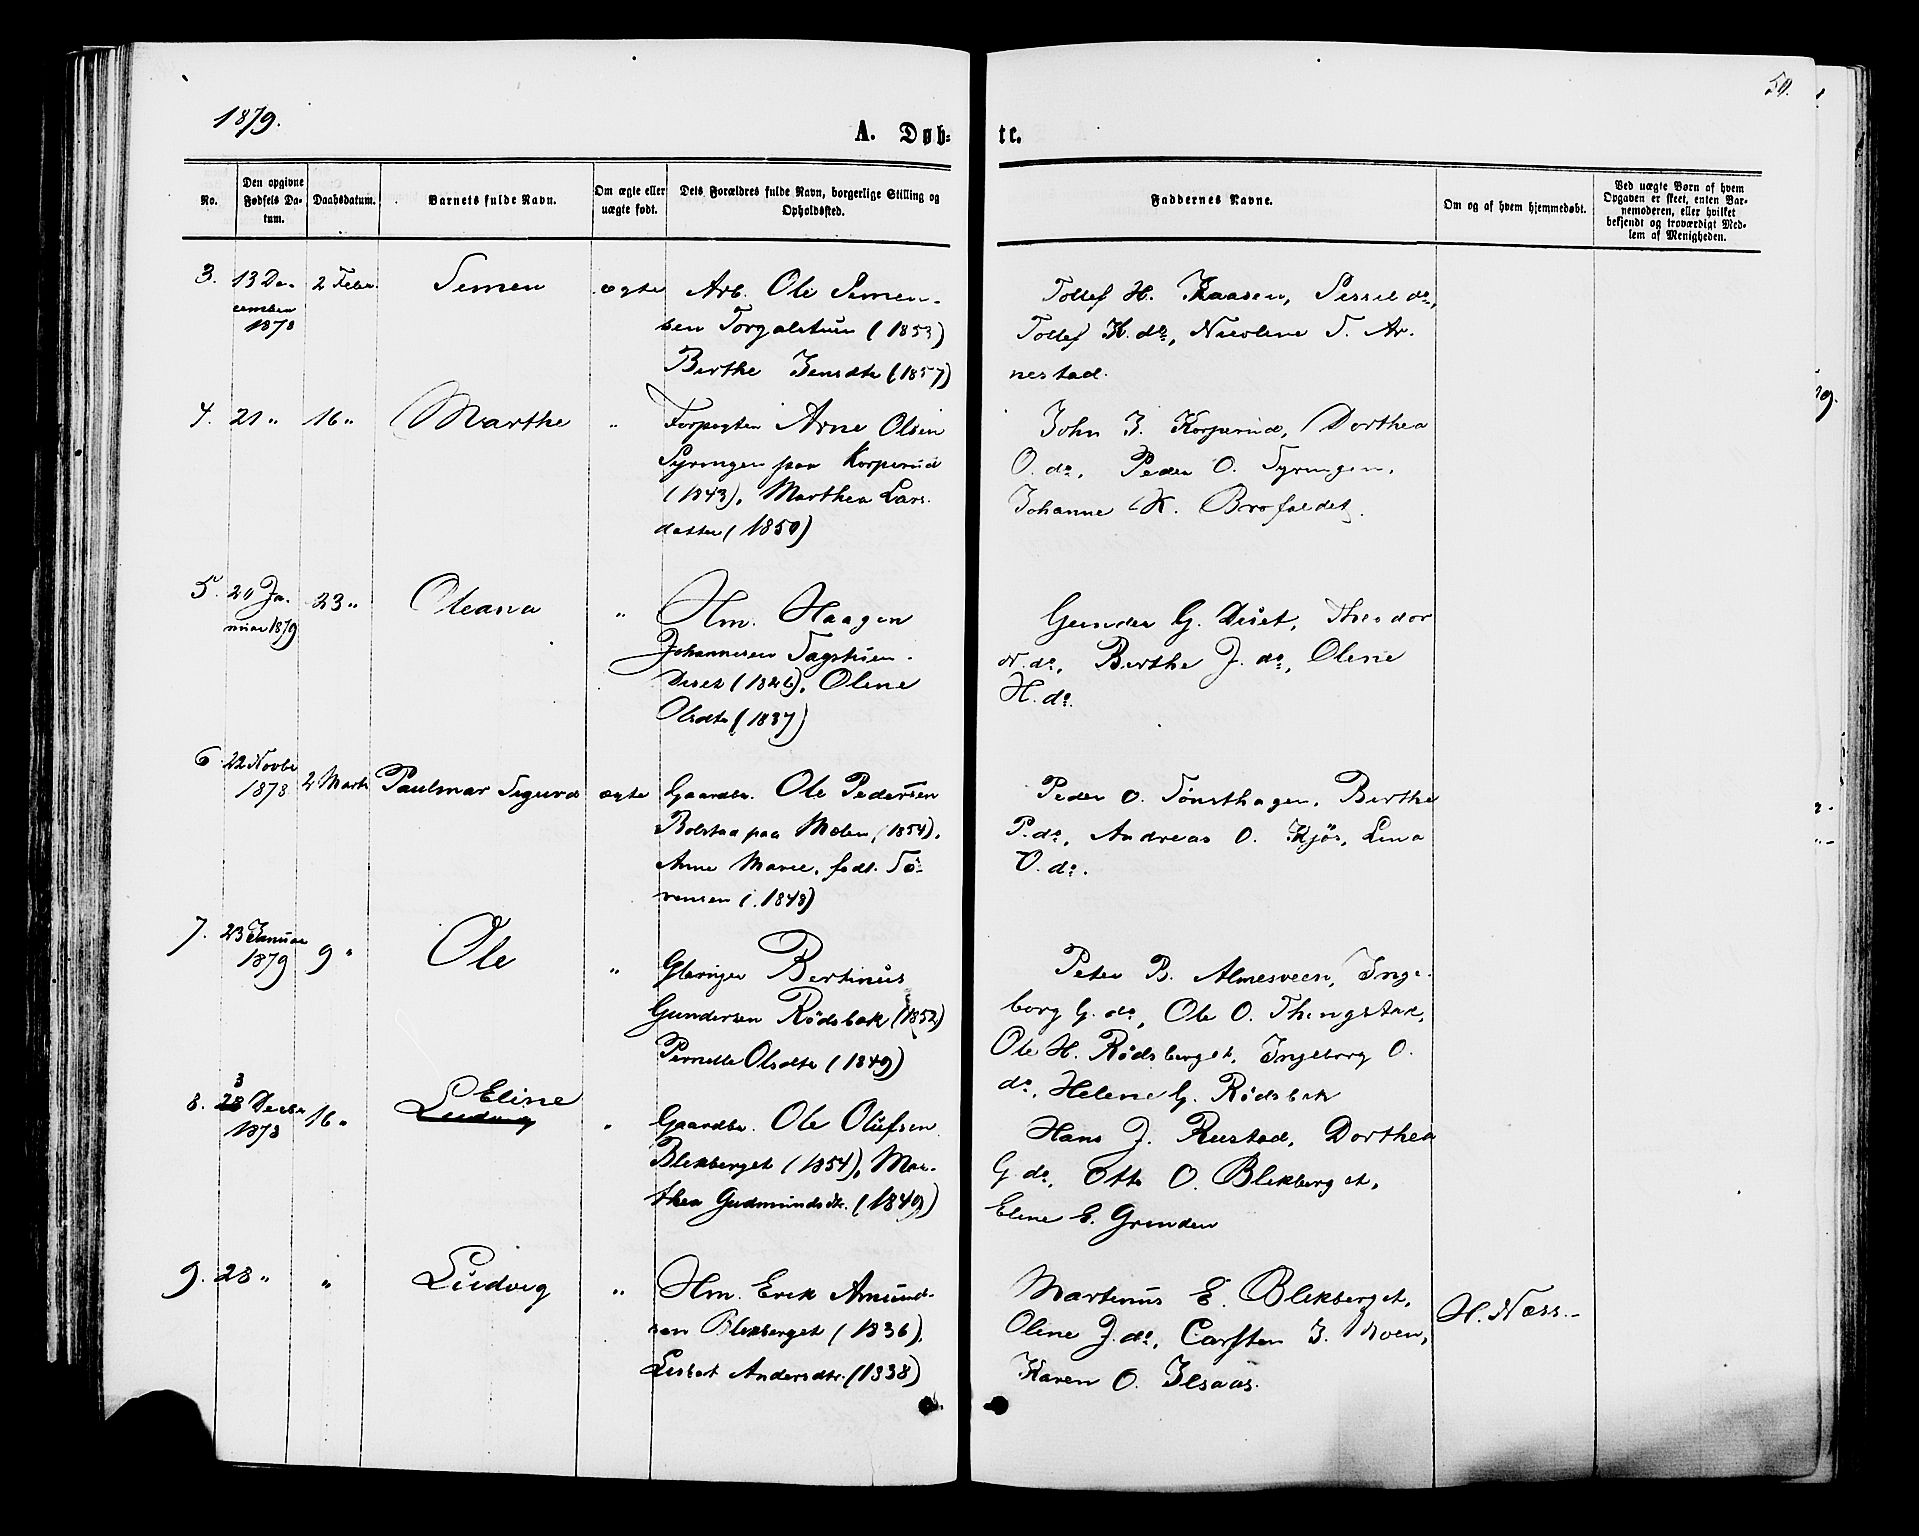 1879.
50.
A. Døb-
te.
No.
Den opgivne Fødsels Da-tum.
Daabsdatum.
Barnets fulde Navn.
Om ægte eller uægte født.
Dets Forældres fulde Navn, borgerlige Stilling og Opholdssted.
Faddernes Navne.
Om og af hvem hjemmedøbt.
Ved uægte Børn af hvem Opgaven er skeet, enten Bar-nemoderen, eller hvilket bekjendt og troværdigt Med-lem af Menigheden.
3. 13 De-
cember
1878
2 Febr
Simen
ægte
Arb. Ole Simen-
sen Torgalstuen (1853)
Berthe Jensdtr (1857)
Tollef H. Kaasen, Sissel do,
Tollef H. do, Nicoline T. Ar-
nestad.
4. 21 "
16 "
Marthe
"
Forpagter Arne Olsen
Syringen paa Korperud
(1843), Marthea Lars-
datter (1850)
John J. Korperud, Dorthea
O. do, Peder O. Syringen,
Johanne K. Brofaldet.
5. 20 Ja-
nuar 1879
23 "
Oleana
"
Hm. Haagen
Johannesen Tagstuen-
Diset (1826), Olene
Olsdtr (1837)
Gunder G. Diset, Theodor
N. do, Berthe J. do, Olene
H. do.
6. 22 Novbr
1878
2 Marts
Paulmar Sigurd
ægte
Gaardbr. Ole Pedersen
Bolstad paa Melen (1854),
Anne Marie, født Sö-
rensen (1848)
Peder O. Tønsthagen, Berthe
P. do, Andreas O. Kjös, Lina
O. do.
7. 23 Januar
1879
9 "
Ole
"
Glaringer Bertinus
Gundersen Rødsbak (1852)
Pernelle Olsdtr (1849)
Peter B. Almesveen, Inge-
borg G. do, Ole O. Thingstad,
Ole H. Rødsberget, Ingeborg O.
do, Helene G. Rødsbak
8. 28 3 Decbr
1878
16 "
Eline
Ludvig
"
Gaardbr. Ole Olufsen
Blekberget (1854), Mar-
thea Gudmundsdtr. (1849)
Hans J. Rustad, Dorthea
G. do, Otto O. Blekberget,
Eline E. Grinden
9. 28 "
"
Ludvig
"
Hm. Erik Amund-
sen Blekberget (1836),
Lisbet Andersdtr. (1838)
Martinus E. Blekberget,
Oline J. do, Carsten J. Moen,
Karen O. Ilsaas.
H. Næss.-